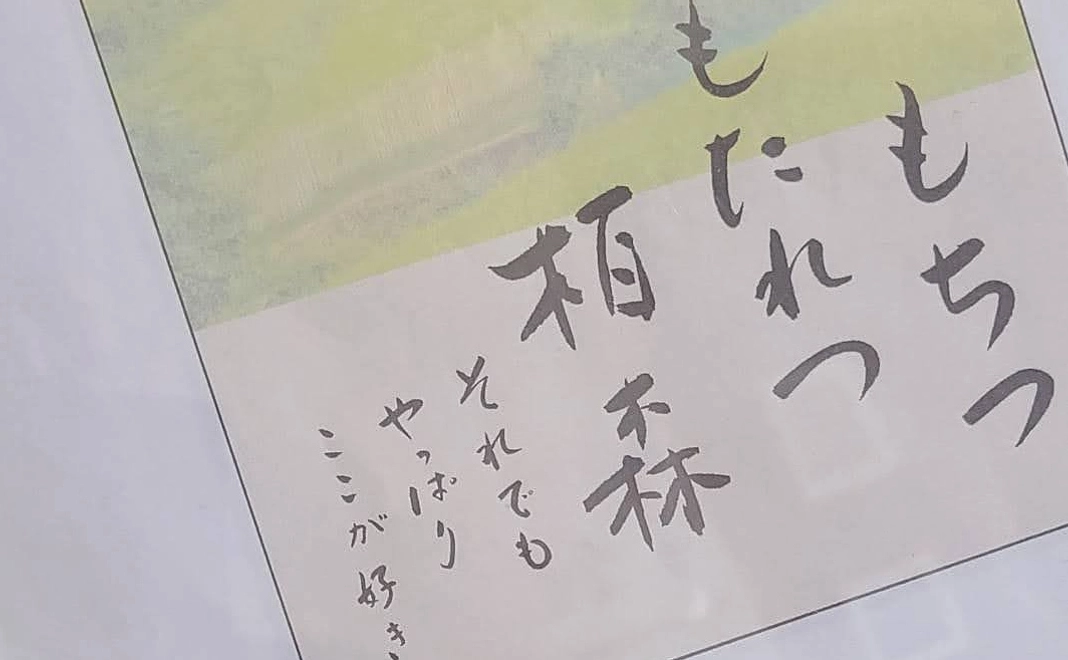 もちつ
もたれつ
柏森
それでも
やっぱり
ここが好き